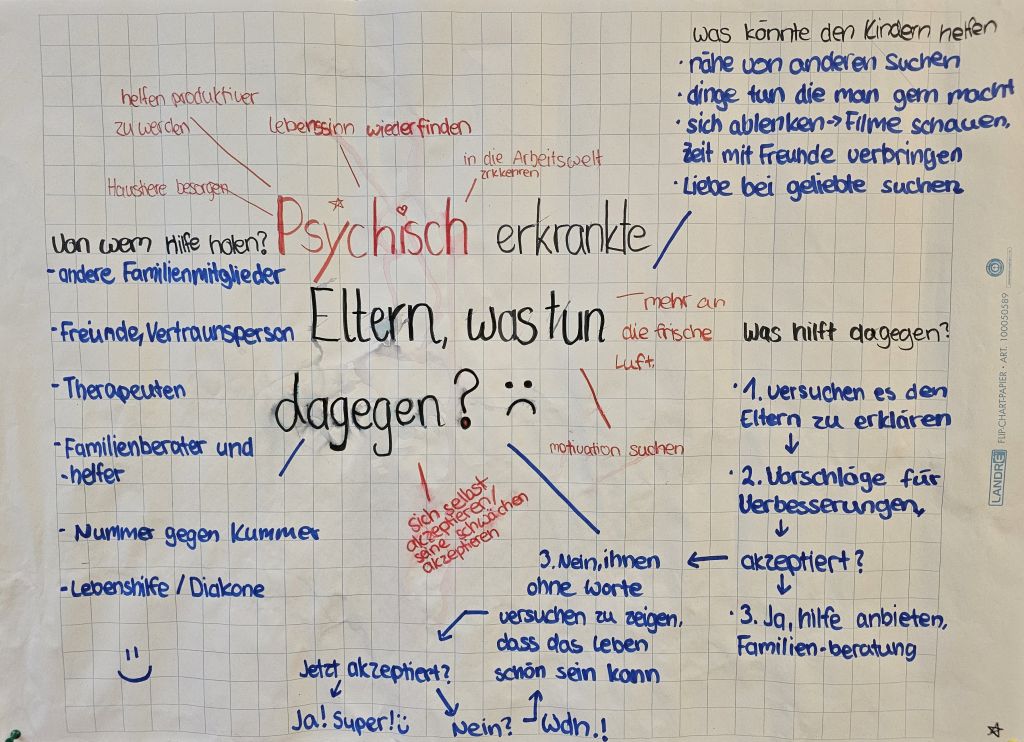 was könnte den Kindern helfen
· nähe von anderen suchen
· dinge tun die man gern macht
· sich ablenken → Filme schauen,
Zeit mit Freunde verbringen
· Liebe bei geliebte suchen
helfen produktiver
zu werden
lebenssinn wiederfinden
in die Arbeitswelt
zrkkehren
Haushere besorgen
Psychisch erkrankte
Eltern, was tun
dagegen? :(
Von wem Hilfe holen?
- andere Familienmitglieder
- Freunde, Vertraunsperson
- Therapeuten
- Familienberater und
-helfer
- Nummer gegen Kummer
- Lebenshilfe / Diakone
mehr an
die frische
Luft.
motivation suchen
Sich selbst
akzeptieren/
seine schwächen
akzeptieren
Was hilft dagegen?
· 1. versuchen es den
Eltern zu erklären
↓
· 2. Vorschläge für
Verbesserungen,
↓
akzeptiert?
↓
· 3. Ja, hilfe anbieten,
Familien-beratung
←
3. Nein, ihnen
ohne worte
versuchen zu zeigen,
dass das leben
schön sein kann
Jetzt akzeptiert?
Ja! Super! :)
Nein?
Wdh.!
LANDRÉ FLIP-CHART-PAPIER • ART. 100050589